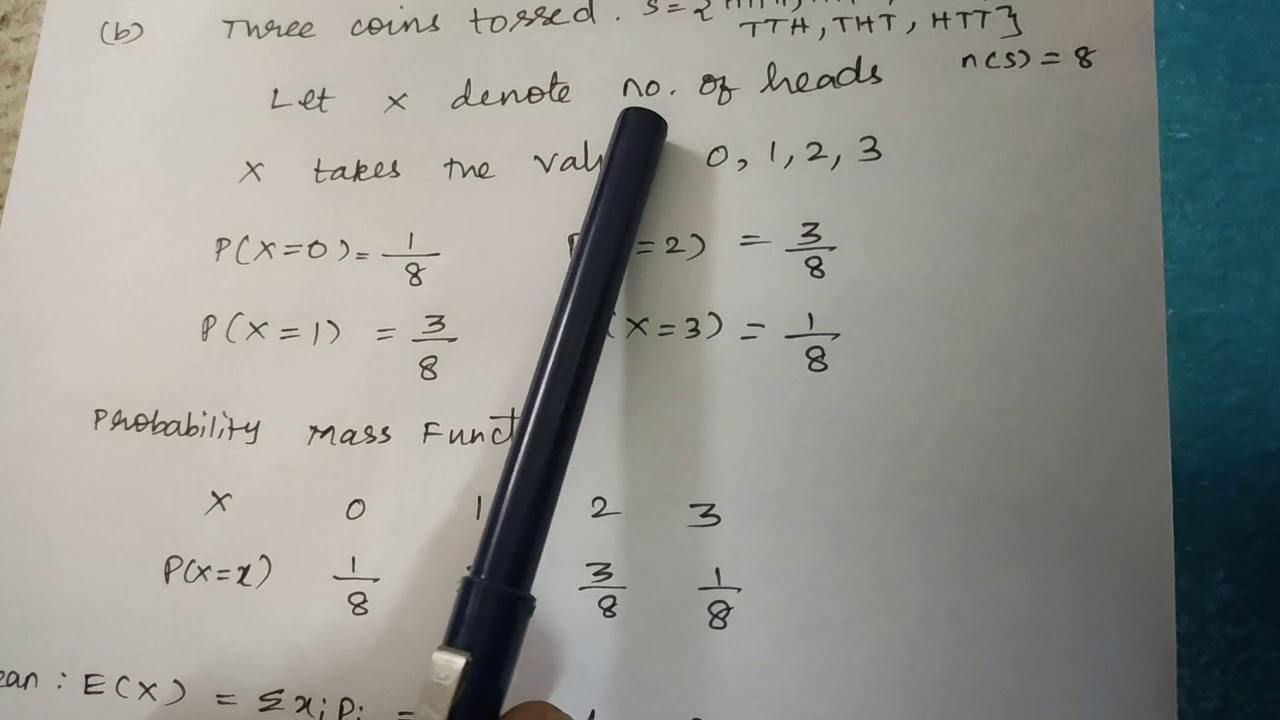 (b) Three coins tossed. S = {
TTH, THT, HTT}
n(S) = 8
Let x denote no. of heads
X takes the 0, 1, 2, 3
P(X=0) = 1/8 =2) = 3/8
P(X=1) = 3/8 (X=3) = 1/8
Probability Mass
X 0 1 2 3
P(X=x) 1/8 3/8 1/8
: E(X) = Σxᵢpᵢ =